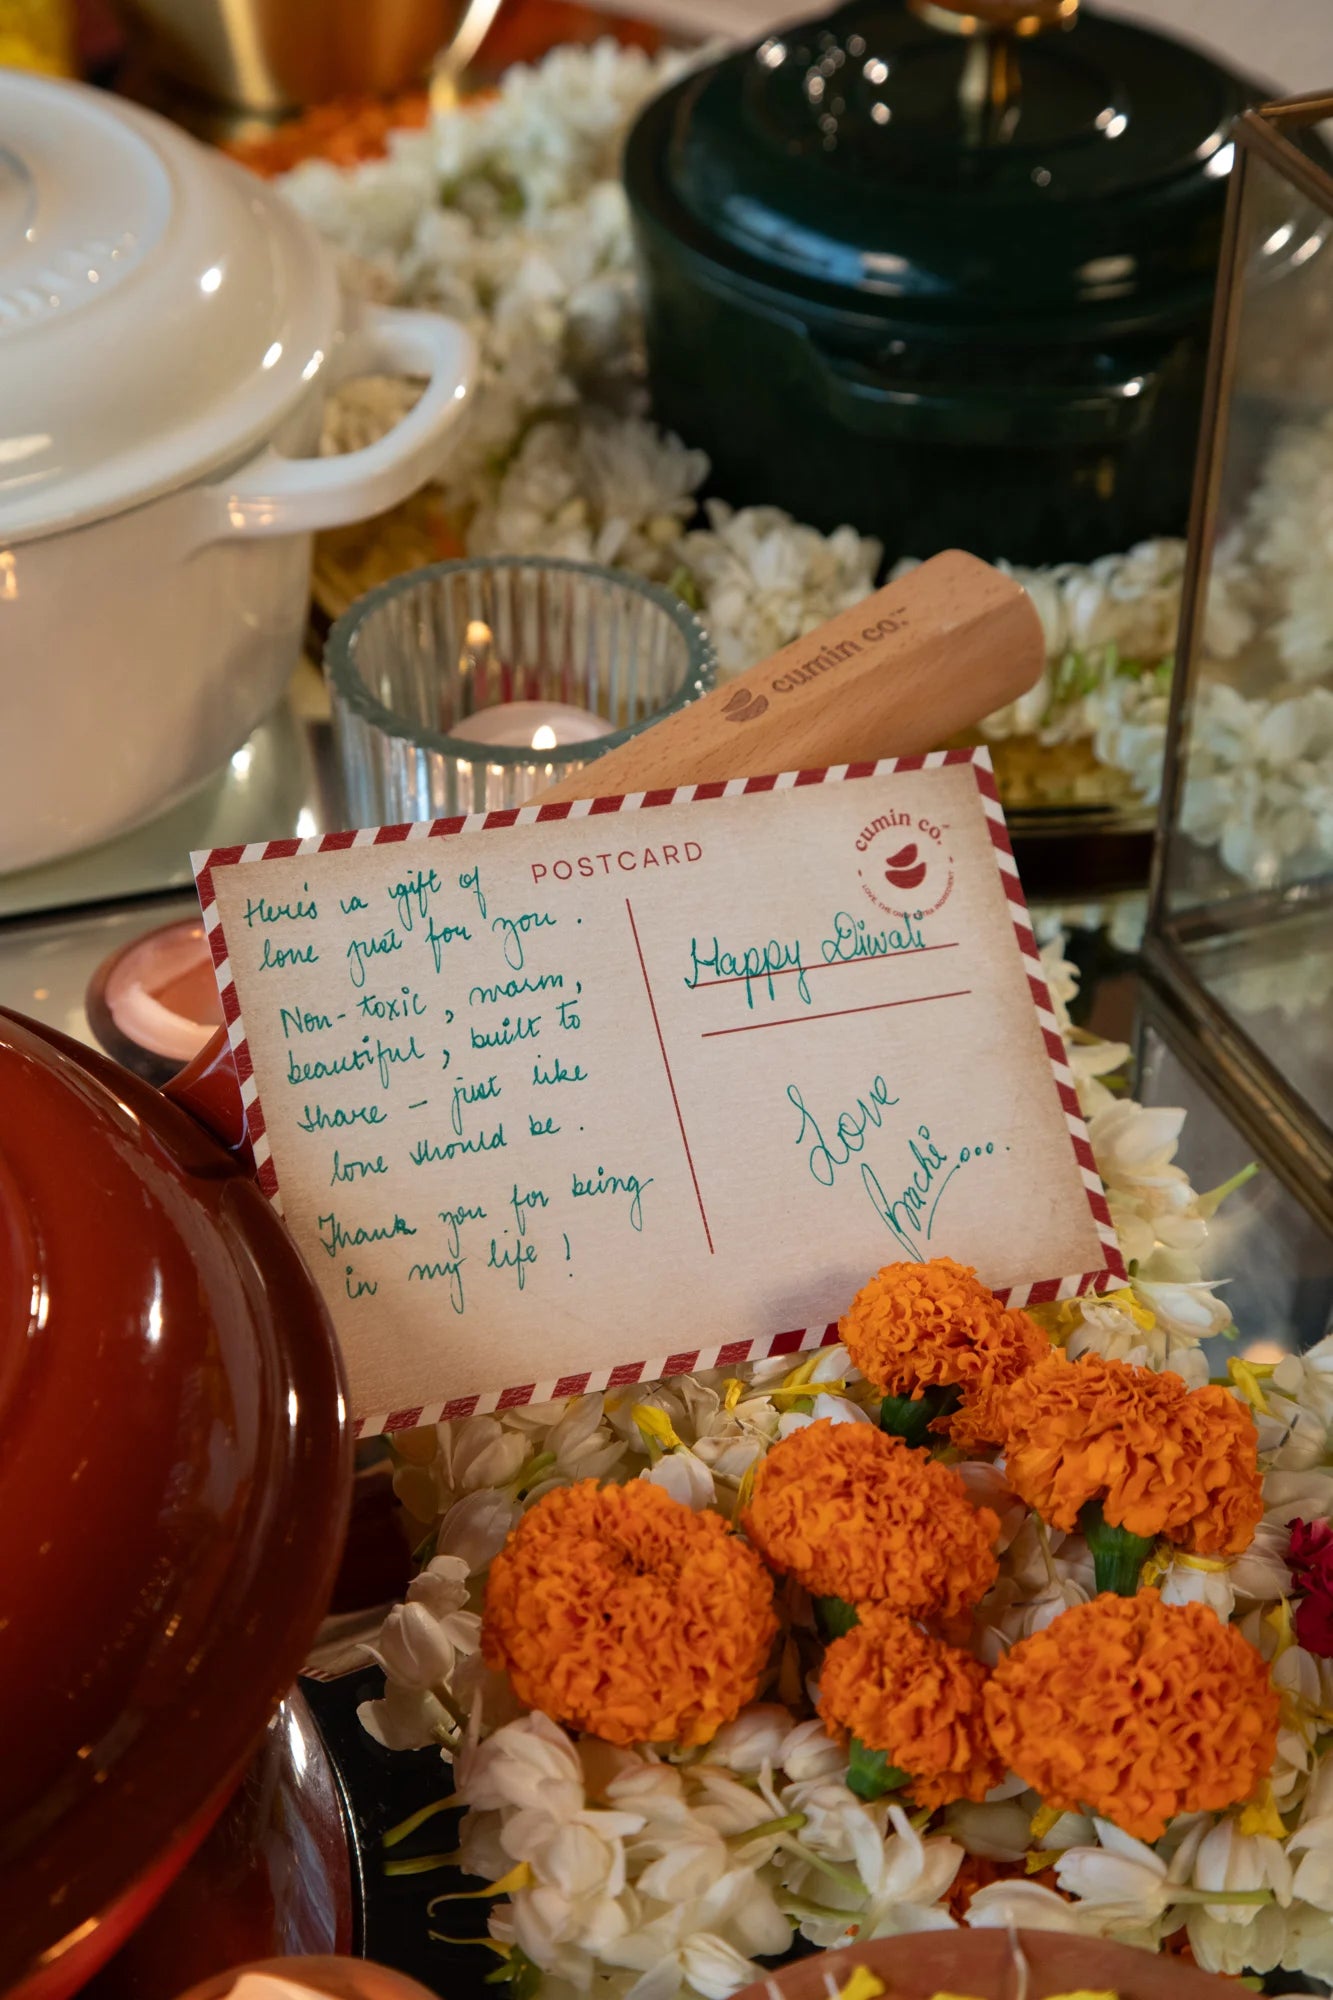 cumin co.™
POSTCARD
cumin co.™
LOVE, THE ONLY EXTRA INGREDIENT
Here's a gift of
love just for you.
Non-toxic, warm,
beautiful, built to
share - just like
love should be.
Thank you for being
in my life!
Happy Diwali
Love